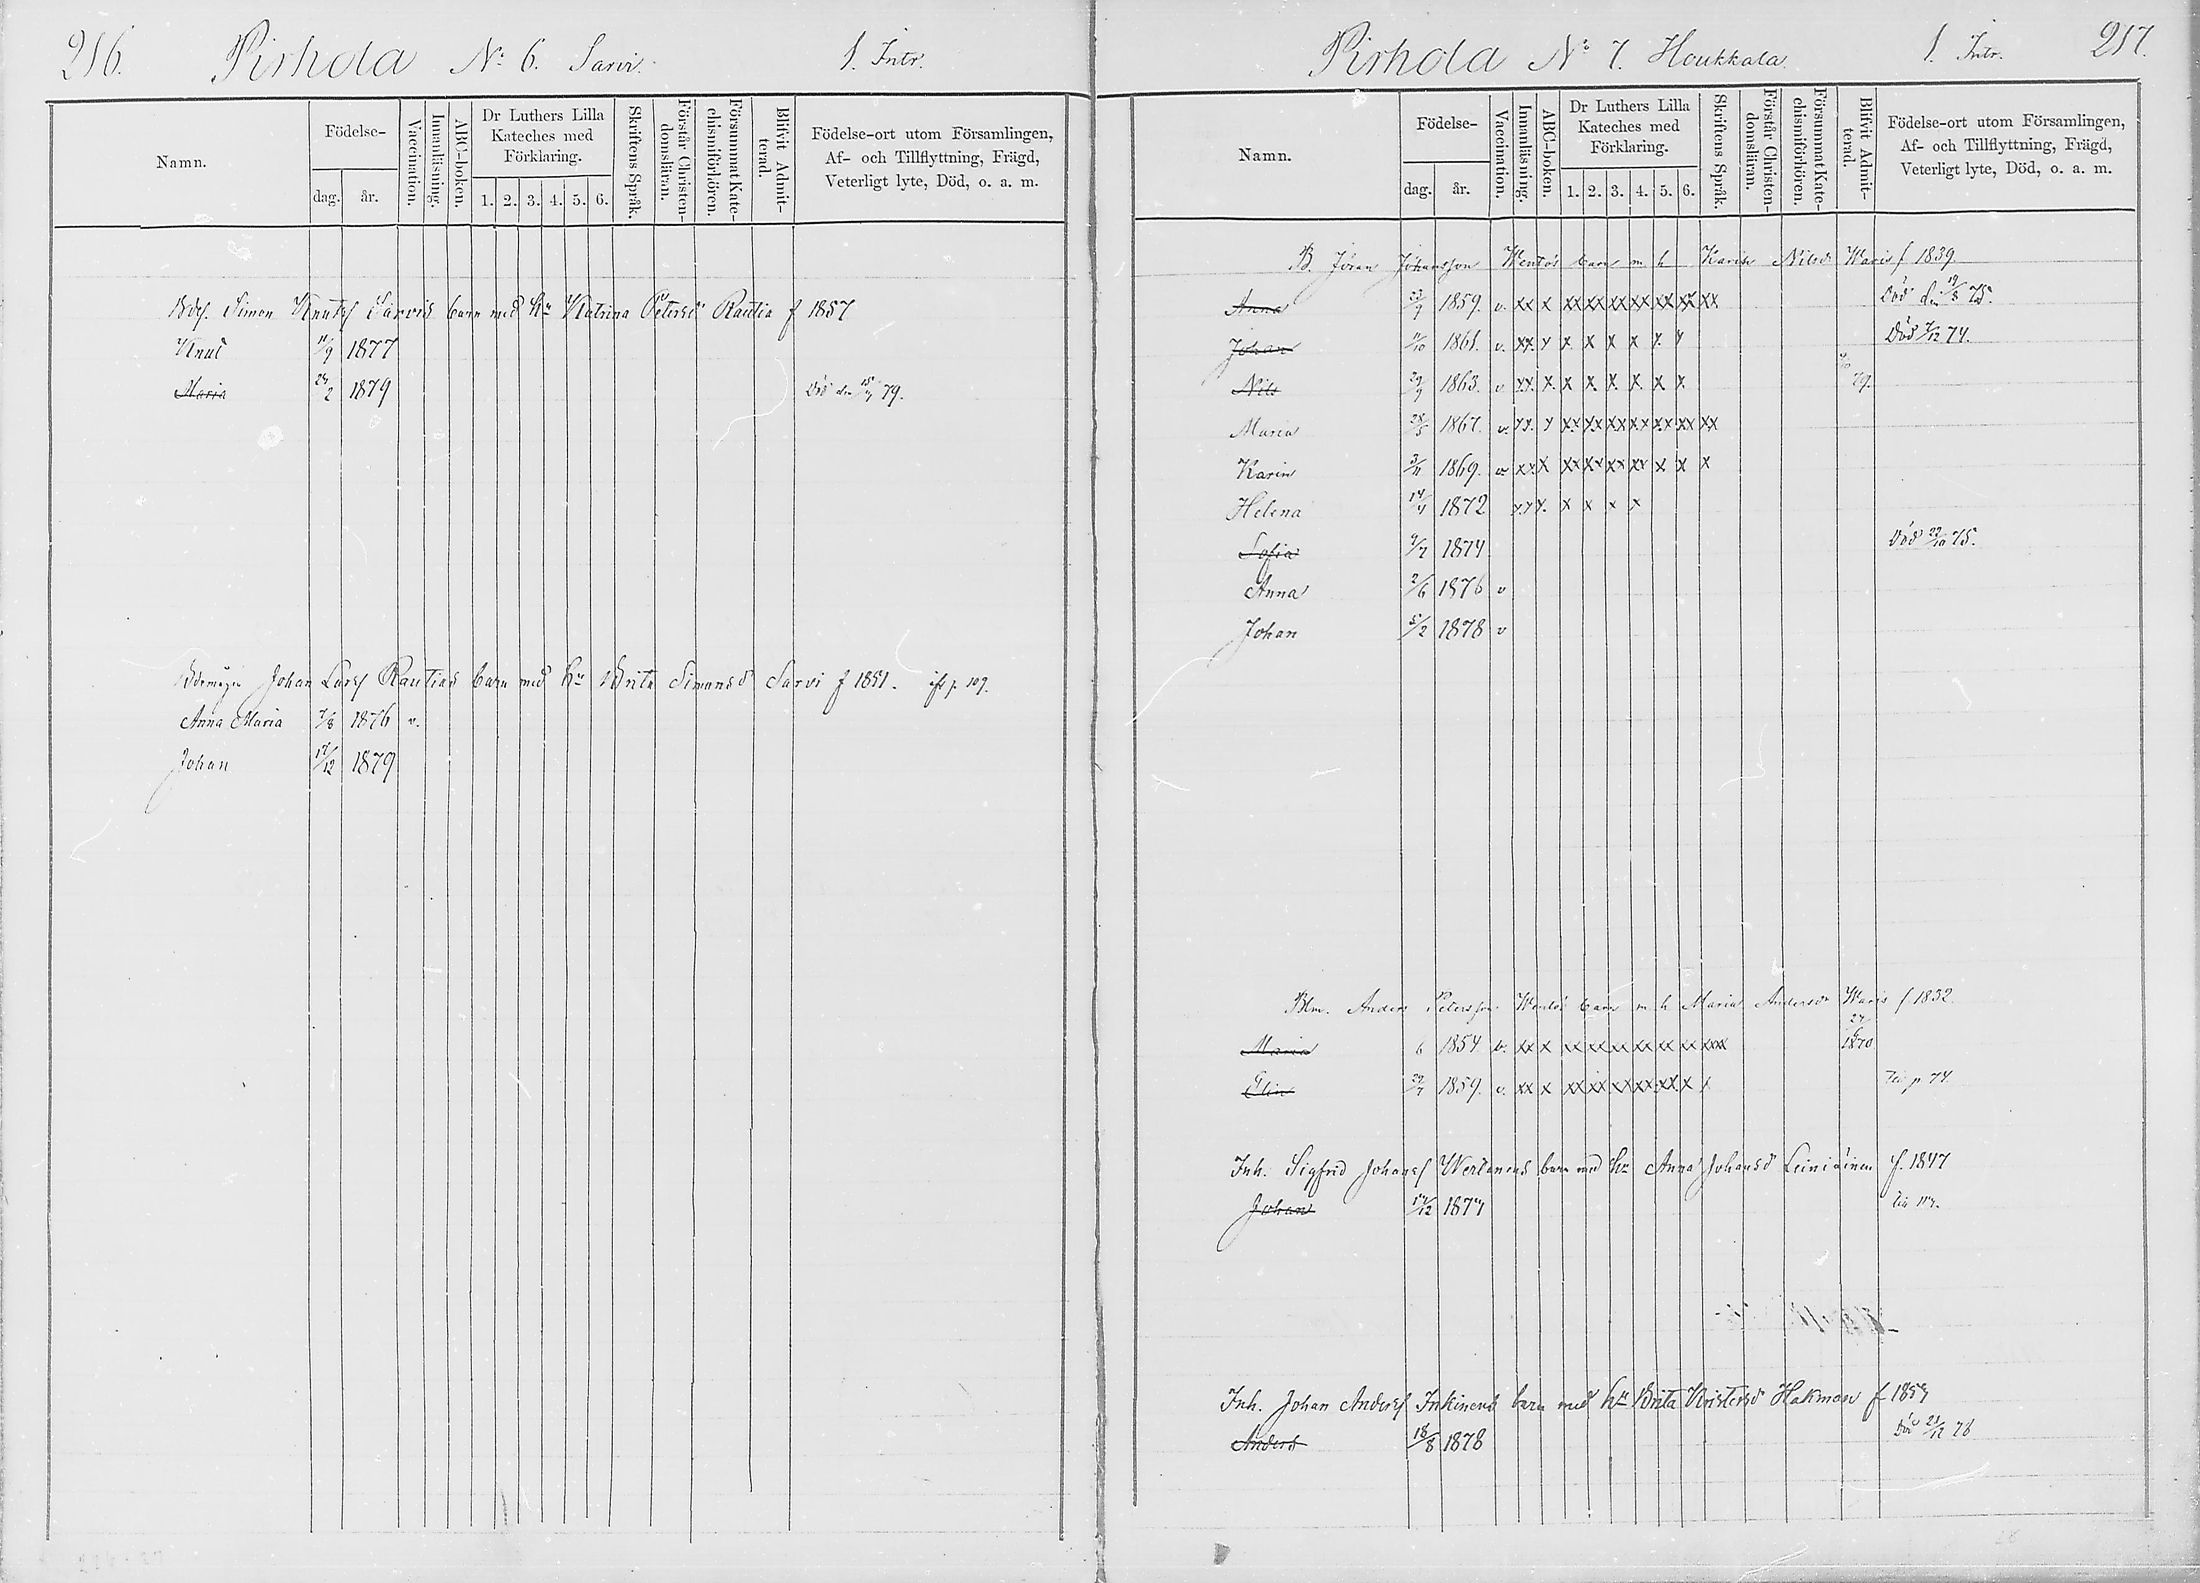 216. Pirhola No 6. Sarvi. 1. Intr.
Namn.
Födelse-
dag. år.
Vaccination.
Innanläsning.
ABC-boken.
Dr Luthers Lilla
Kateches med
Förklaring.
1. 2. 3. 4. 5. 6.
Skriftens Språk.
Förstår Christen-
domsläran.
Försummat Kate-
chismiförhören.
Blifvit Admit-
terad.
Födelse-ort utom Församlingen,
Af- och Tillflyttning, Frägd,
Veterligt lyte, Död, o. a. m.
Simon Knutsf Sarvis barn med hu Katrina Petersd Rautia f 1857
Knut 11/9 1877
Maria 24/2 1879 Död den 79.
Johan Larsf Rautias barn med hu Brita Simonsd Sarvi f 1851. p. 109.
Anna Maria 7/8 1876 v.
Johan 17/12 1879
Pirhola No 7. Houkkala. 1. Intr. 217.
Namn.
Födelse-
dag. år.
Vaccination.
Innanläsning.
ABC-boken.
Dr Luthers Lilla
Kateches med
Förklaring.
1. 2. 3. 4. 5. 6.
Skriftens Språk.
Förstår Christen-
domsläran.
Försummat Kate-
chismiförhören.
Blifvit Admit-
terad.
Födelse-ort utom Församlingen,
Af- och Tillflyttning, Frägd,
Veterligt lyte, Död, o. a. m.
B. Jöran Johansson Wentös barn m h Karin Nilsd Waris f 1839
Anna 23/7 1859. v. xx x xx xx xx xx xx xx xx Död den 19/8 75.
Johan 11/10 1861. v. xx. x x x x x x x Död 7/12 74.
Nils 29/9 1863. v xx. x. x x. x x x x 79.
Maria 28/5 1867. v. xx. x xx xx xx xx xx xx xx
Karin 3/11 1869. v xx x xx xx xx xx x x x
Helena 14/4 1872 xx x. x x x x
Sofia 9/7 1874 Död 22/10 75.
Anna 2/6 1876 v
Johan 5/2 1878 v
Blm. Anders Petersson Wentös barn m h Maria Andersdr Waris f 1832.
Maria 6 1854. v. xx x xx xx xx xx xx xx xxx 24/6 1870
Elin 29/7 1859. v. xx x xx xx xx xx xx x x p. 74.
Inh. Sigfrid Johansf Wertanens barn med hu Anna Johansd Leiniäinen f. 1847
Johan 12 1877
Inh. Johan Andersf Inkinens barn med hu Brita Kristersd Hakman f 1853
Anders 18/8 1878 Död 23/12 78